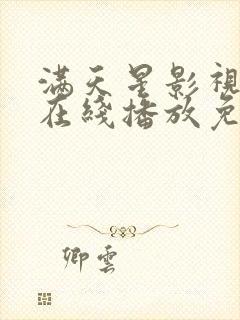 满天星影視
在綫播放免
卿雲